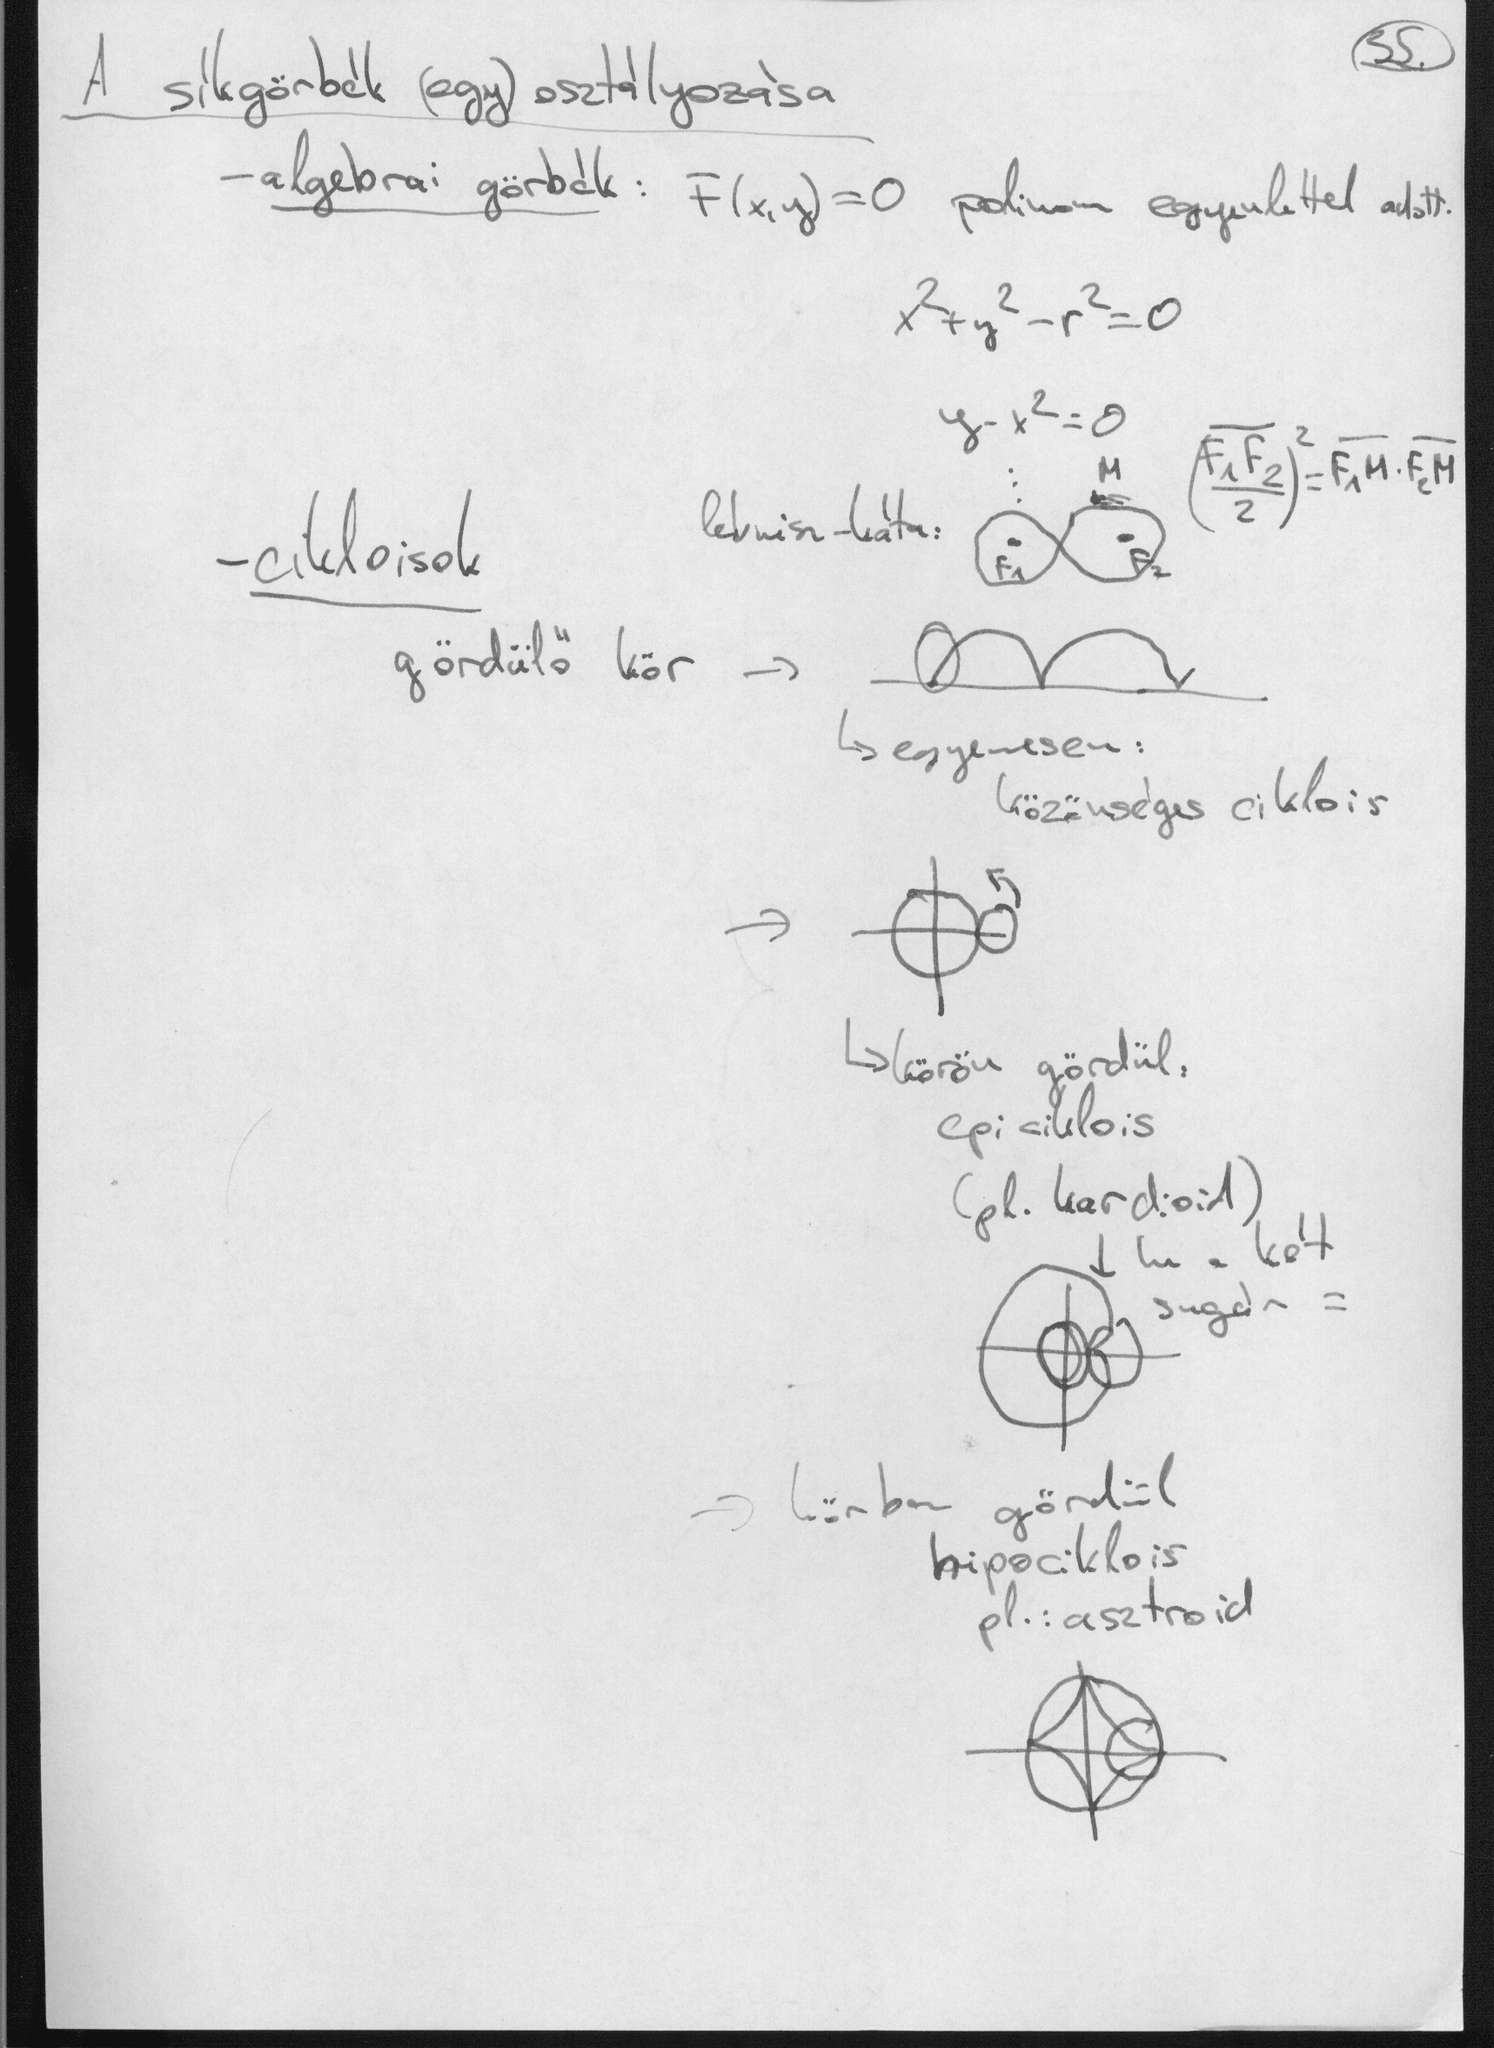 35.
A síkgörbék (egy) osztályozása
- algebrai görbék: F(x,y)=0 polinom egyenlettel adott.
x²+y²-r²=0
y-x²=0
⋮
lemnisz-káta: F₁ F₂ M (F₁F₂/2)²=F₁M·F₂M
- cikloisok
gördülő kör →
↳ egyenesen:
közönséges ciklois
→
↳ körön gördül:
epiciklois
(pl. kardioid)
↓ ha a két
sugár =
→ körben gördül
hipociklois
pl.: asztroid